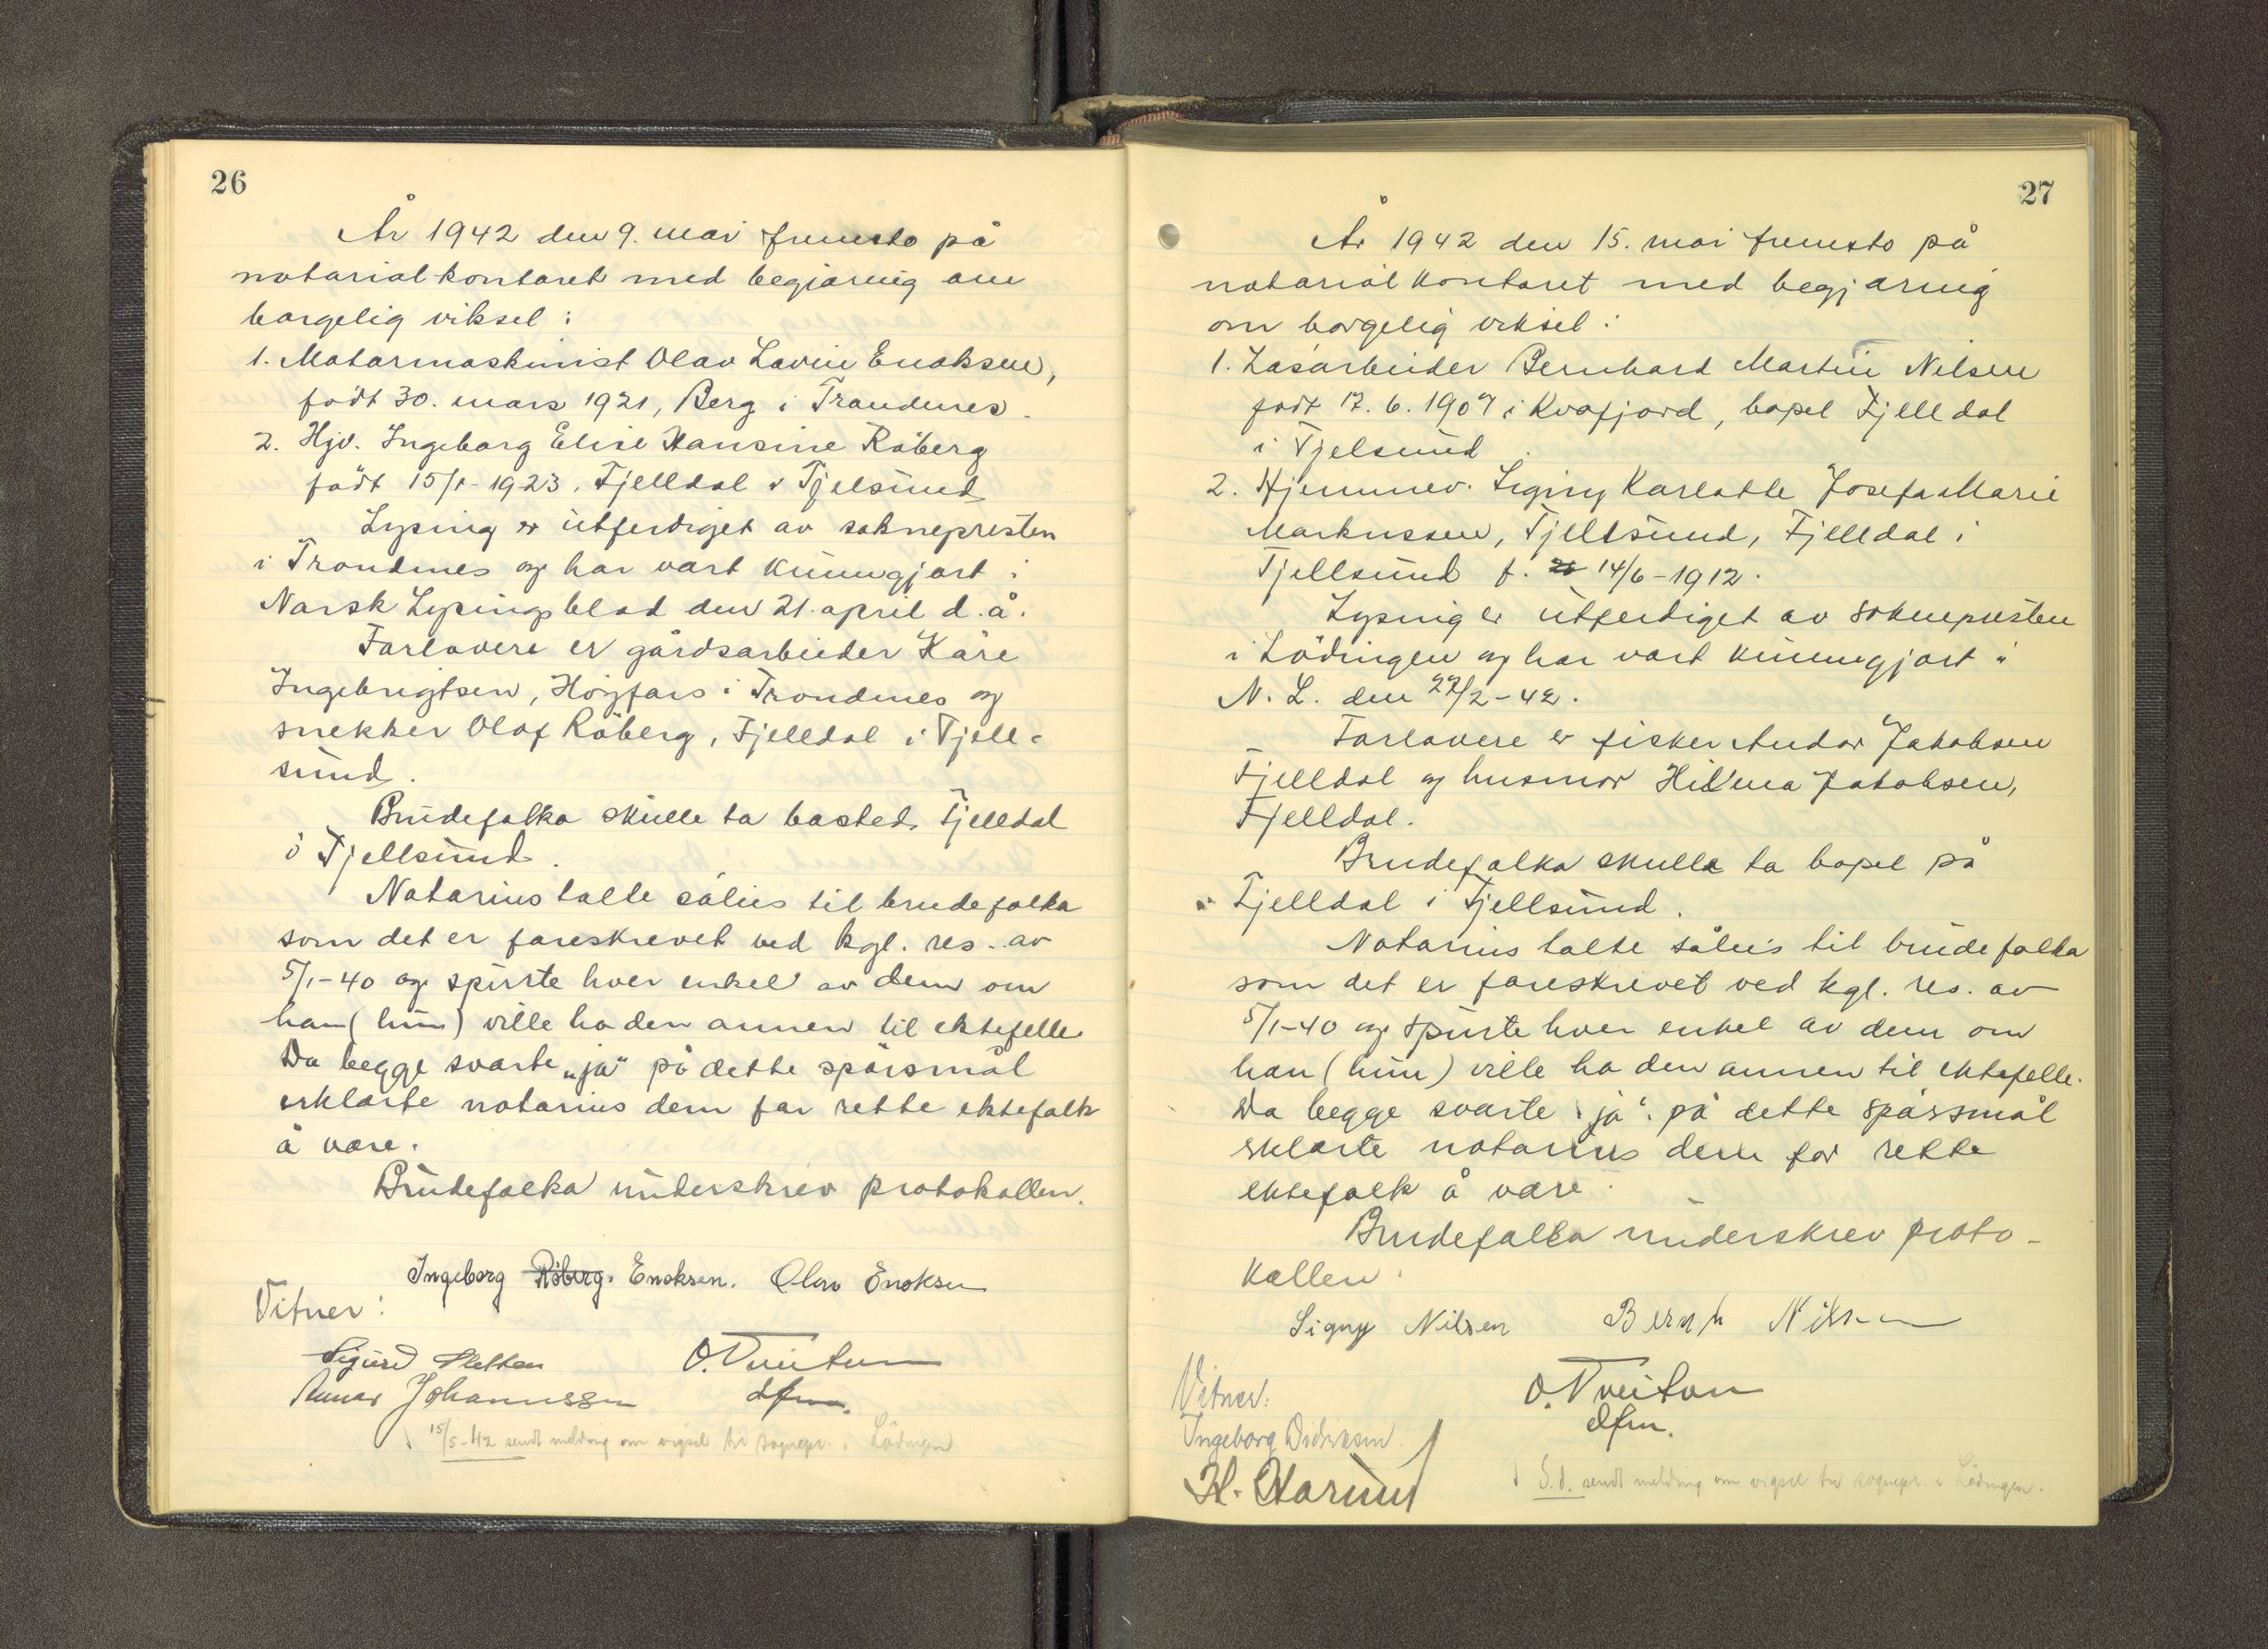 26
År 1942 den 9. mai fremsto på
notarial-kontoret med begjæring om
borgelig viksel:
1. Motormaskinist Olav Lavin Enoksen,
født 30. mars 1921, Berg i Trondenes.
2. Hjv. Ingeborg Elise Hansine Råberg
født 15/1-1923, Fjelldal i Tjelsund
Lysing er utferdiget av soknepresten
i Trondenes og har vært kunngjort i
Norsk Lysingsblad den 21. april d.å.
Forlovere er gårdsarbeider Kåre
Ingebrigtsen, Høgfors i Trondenes og
snekker Olaf Råberg, Fjelldal i Tjell-
sund.
Brudefolka skulle ta bosted Fjelldal
i Tjellsund.
Notarius talte såleis til brudefolka
som det er foreskrevet ved kgl. res. av
5/1-40 og spurte hver enkel av dem om
han (hun) ville ha den annen til ektefelle
Da begge svarte „ja" på dette spørsmål
erklærte notarius dem for rette ektefolk
å være.
Brudefolka underskrev protokollen.
Ingeborg Råberg. Enoksen. Olav Enoksen
Vitner:
Sigurd Sletten O. Tveiten
Johannessen dfm.
15/5-42 sendt melding om vigsel til sognepr. i Lödingen
27
År 1942 den 15. mai fremsto på
notarialkontoret med begjæring
om borgelig viksel:
1. Løsarbeider Bernhard Martin Nilsen
født 17. 6. 1907 i Kvæfjord, bopel Fjelldal
i Tjelsund
2. Hjemmev. Signy Karlotte Josefa Marie
Markussen, Tjellsund, Fjelldal i
Tjellsund f. 14/6-1912.
Lysing er utferdiget av soknepresten
i Lödingen og har vært kunngjort i
N. L. den 27/2-42.
Forlovere er fisker Andor Jakobsen
Fjelldal og husmor Hilma Jakobsen,
Fjelldal.
Brudefolka skulle ta bopel på
Fjelldal i Tjellsund.
Notarius talte såleis til brudefolka
som det er foreskrevet ved kgl. res. av
5/1-40 og spurte hver enkel av dem om
han (hun) ville ha den annen til ektefelle.
Da begge svarte „ja". på dette spørsmål
erklærte notarius dem for rette
ektefolk å være.
Brudefolka underskrev proto-
kollen.
Signy Nilsen Bernh Nilsen
Vitner: O. Tveiten
dfm.
Ingeborg Didriksen
H. Harund
S.d. sendt melding om vigsel til sognepr. i Lödingen.